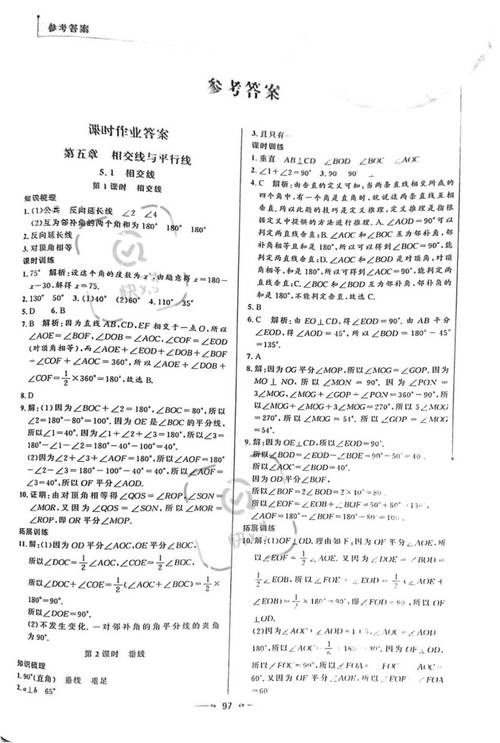 参考答案
参考答案
课时作业答案
第五章 相交线与平行线
5.1 相交线
第1课时 相交线
知识梳理
1.(1)公共 反向延长线 ∠2 ∠4
(2)互为邻补角的两个角和为180° 180° 180°
2.反向延长线
3.对顶角相等
课时训练
1.75° 解析:设这个角的度数为x°,由题意得x=180-
x-30.解得x=75.
2.130° 50° 3.(1)40° (2)60° 4.110° 35°
5.D 6.B
7.B 解析:因为直线AB,CD,EF相交于一点O,所以
∠AOE=∠BOF,∠DOB=∠AOC,∠COF=∠EOD
(对顶角相等),而∠AOE+∠EOD+∠DOB+∠BOF
+∠COF+∠AOC=360°,所以∠AOE+∠DOB+
∠COF=1/2×360°=180°,故选B.
8.D
9.解:(1)因为∠BOC+∠2=180°,∠BOC=80°,所以
∠2=180°-80°=100°.因为OE是∠BOC的平分线,
所以∠1=40°.因为∠1+∠2+∠3=180°,所以∠3=
180°-∠1-∠2=180°-40°-100°=40°.
(2)因为∠2+∠3+∠AOF=180°,所以∠AOF=180°
-∠2-∠3=180°-100°-40°=40°,所以∠AOF=
∠3=40°,所以OF平分∠AOD.
10.证明:由对顶角相等得∠QOS=∠ROP,∠SON
=∠MOR,又因为∠QOS=∠SON,所以∠MOR
=∠ROP,即OR平分∠MOP.
拓展训练
11.解:(1)因为OD平分∠AOC,OE平分∠BOC,
所以∠DOC=1/2∠AOC,∠COE=1/2∠BOC,
所以∠DOC+∠COE=1/2(∠AOC+∠BOC)=1/2×
180°=90°.
所以∠DOE=90°.
(2)不发生变化.一对邻补角的角平分线的夹角
为90°.
第2课时 垂线
知识梳理
1.90°(直角) 垂线 垂足
2.a⊥b 65°
3.且只有一
课时训练
1.垂直 AB⊥CD ∠BOD ∠BOC ∠AOC
2.∠1+∠2=90° 3.50 90°
4.C 解析:由垂直的定义可知,当两条直线相交所成的
四个角中,有一个角是直角时,就说这两条直线互相
垂直.所以此题的技巧是定义推理,定义推理是指根
据定义中提供的方法进行推理.A.∠AOD=90°可以
判定两直线垂直;A.∠AOC和∠BOC互为邻补角,邻
补角相等且和是180°,所以可以得到∠BOC=90°,能
判定两直线垂直;B.∠AOC和∠BOD是对顶角,对顶
角相等,和是180°,所以可得到∠AOC=90°,能判定两
直线垂直;C.∠BOC和∠BOD互为邻补角,邻补角的
和是180°,不能判定垂直.故选C.
6.C 解析:由EO⊥CD,得∠EOD=90°.由AB平分
∠EOD,得∠AOD=45°,所以∠BOD=180°-45°
=135°.
7.A
8.解:因为OG平分∠MOP,所以∠MOG=∠GOP.因为
MO⊥NO,所以∠MON=90°,因为∠PON=
3∠MOG,∠MOG+∠GOP+∠PON=360°-90°,所
以∠MOG+∠MOG+3∠MOG=270°,所以5∠MOG
=270°,所以∠MOG=54°,所以∠GOP=∠MOG
=54°.
9.解:因为OE⊥CD,所以∠EOD=90°.
所以∠BOD=∠EOD-∠BOE=90°-50°=40°,
所以∠AOC=∠BOD=40°.
因为OD平分∠BOF,
所以∠BOF=2∠BOD=2×40°=80°.
所以∠EOF=∠BOE+∠BOF=50°+80°=130°.
所以∠AOF=180°-∠BOF=180°-80°=100°.
拓展训练
10.解:(1)OF⊥OD.理由如下,因为OF平分∠AOE,所
以∠EOF=1/2∠AOE.又因为∠DOE=∠BOD=
1/2∠EOB,所以∠FOE+∠EOD=1/2(∠AOE+
∠EOB)=1/2×180°=90°,即∠FOD=90°,所以OF
⊥OD.
(2)因为∠AOC:∠AOD=1:5,∠AOC+∠AOD